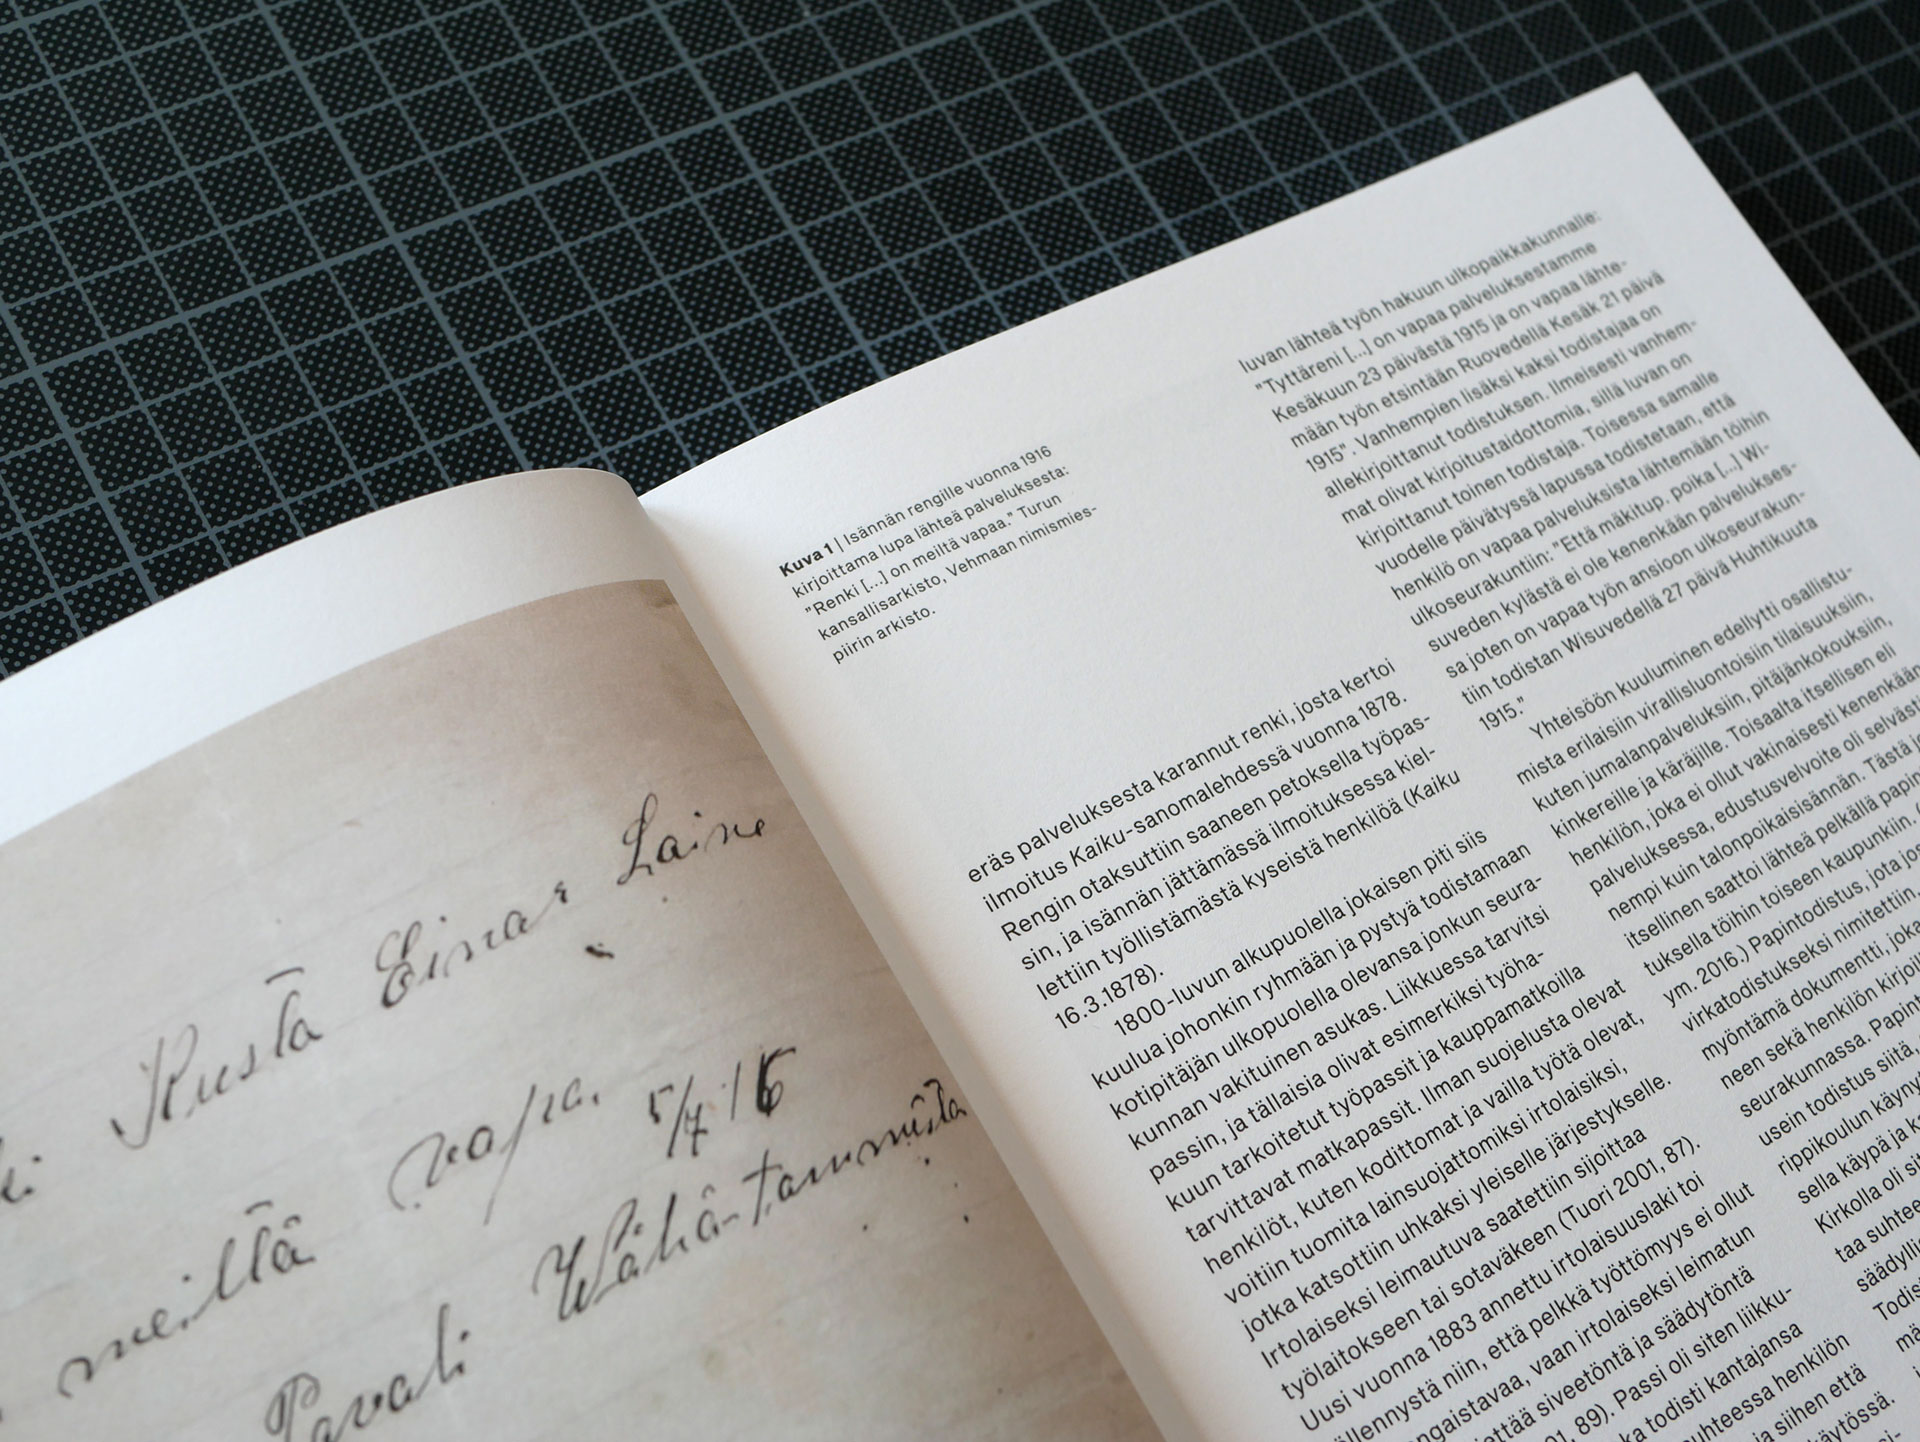 Kusta Einar Laine
meiltä vapa. 5/4 16
Pavali Wähä-tammista
Kuva 1 | Isännän rengille vuonna 1916
kirjoittama lupa lähteä palveluksesta:
"Renki [...] on meiltä vapaa." Turun
kansallisarkisto, Vehmaan nimismies-
piirin arkisto.
eräs palveluksesta karannut renki, josta kertoi
ilmoitus Kaiku-sanomalehdessä vuonna 1878.
Rengin otaksuttiin saaneen petoksella työpas-
sin, ja isännän jättämässä ilmoituksessa kiel-
lettiin työllistämästä kyseistä henkilöä (Kaiku
16.3.1878).
1800-luvun alkupuolella jokaisen piti siis
kuulua johonkin ryhmään ja pystyä todistamaan
kotipitäjän ulkopuolella olevansa jonkun seura-
kunnan vakituinen asukas. Liikkuessa tarvitsi
passin, ja tällaisia olivat esimerkiksi työha-
kuun tarkoitetut työpassit ja kauppamatkoilla
tarvittavat matkapassit. Ilman suojelusta olevat
henkilöt, kuten kodittomat ja vailla työtä olevat,
voitiin tuomita lainsuojattomiksi irtolaisiksi,
jotka katsottiin uhkaksi yleiselle järjestykselle.
Irtolaiseksi leimautuva saatettiin sijoittaa
työlaitokseen tai sotaväkeen (Tuori 2001, 87).
Uusi vuonna 1883 annettu irtolaisuuslaki toi
ällennystä niin, että pelkkä työttömyys ei ollut
ngaistavaa, vaan irtolaiseksi leimatun
iettää siveetöntä ja säädytöntä
01, 89). Passi oli siten liikku-
ka todisti kantajansa
uhteessa henkilön
ja siihen että
käytössä.
luvan lähteä työn hakuun ulkopaikkakunnalle:
"Tyttäreni [...] on vapaa palveluksestamme
Kesäkuun 23 päivästä 1915 ja on vapaa lähte-
mään työn etsintään Ruovedellä Kesäk 21 päivä
1915". Vanhempien lisäksi kaksi todistajaa on
allekirjoittanut todistuksen. Ilmeisesti vanhem-
mat olivat kirjoitustaidottomia, sillä luvan on
kirjoittanut toinen todistaja. Toisessa samalle
vuodelle päivätyssä lapussa todistetaan, että
henkilö on vapaa palveluksista lähtemään töihin
ulkoseurakuntiin: "Että mäkitup. poika [...] Wi-
suveden kylästä ei ole kenenkään palvelukses-
sa joten on vapaa työn ansioon ulkoseurakun-
tiin todistan Wisuvedellä 27 päivä Huhtikuuta
1915."
Yhteisöön kuuluminen edellytti osallistu-
mista erilaisiin virallisluontoisiin tilaisuuksiin,
kuten jumalanpalveluksiin, pitäjänkokouksiin,
kinkereille ja käräjille. Toisaalta itsellisen eli
henkilön, joka ei ollut vakinaisesti kenenkään
palveluksessa, edustusvelvoite oli selvästi
nempi kuin talonpoikaisisännän. Tästä
itsellinen saattoi lähteä pelkällä
tuksella töihin toiseen kaupunkiin.
ym. 2016.) Papintodistus, jota
virkatodistukseksi nimitettiin,
myöntämä dokumentti, joka
neen sekä henkilön
seurakunnassa.
usein todistus siitä,
rippikoulun
sella käypä ja
Kirkolla oli
taa